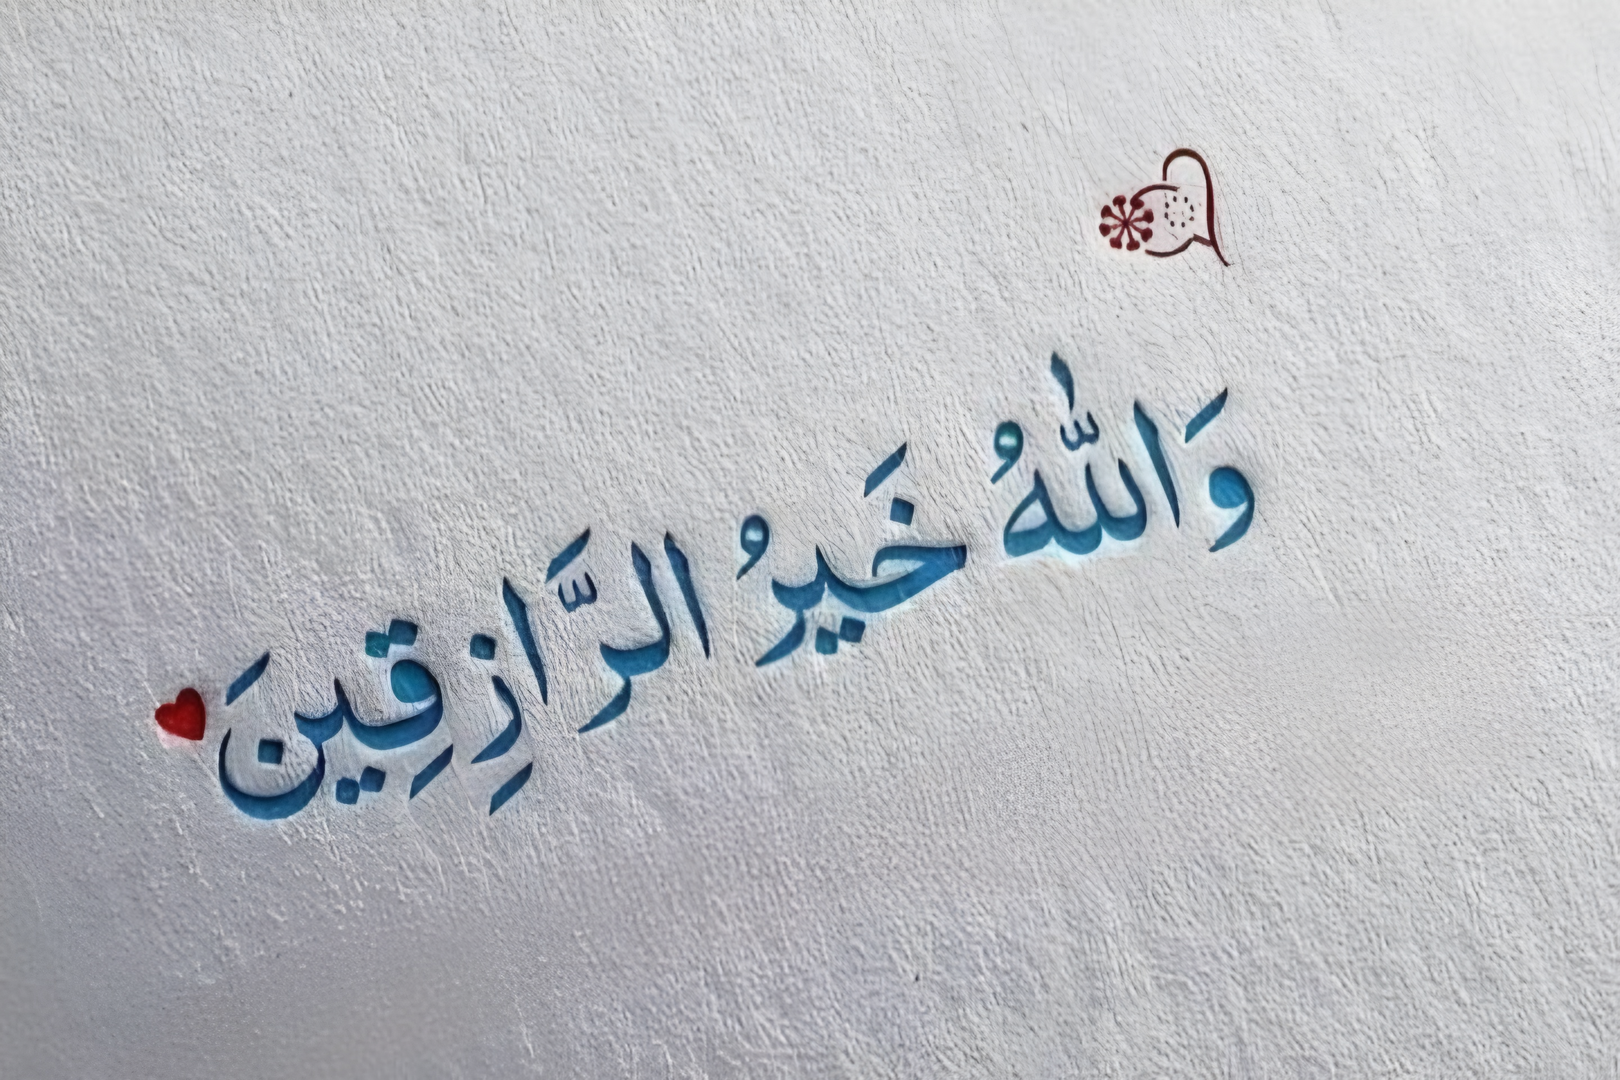 وَاللّٰهُ خَيرُ الرَّازِقِينَ